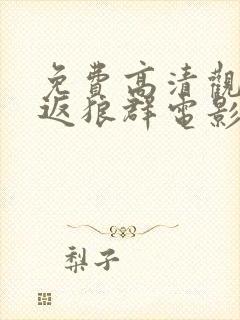 免費高清觀
返狼群電影
梨子